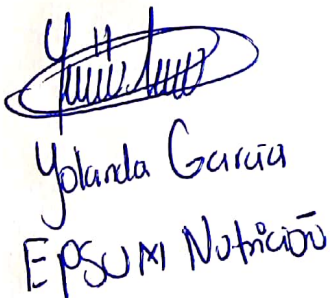 Yolanda García
EPSUM Nutrición